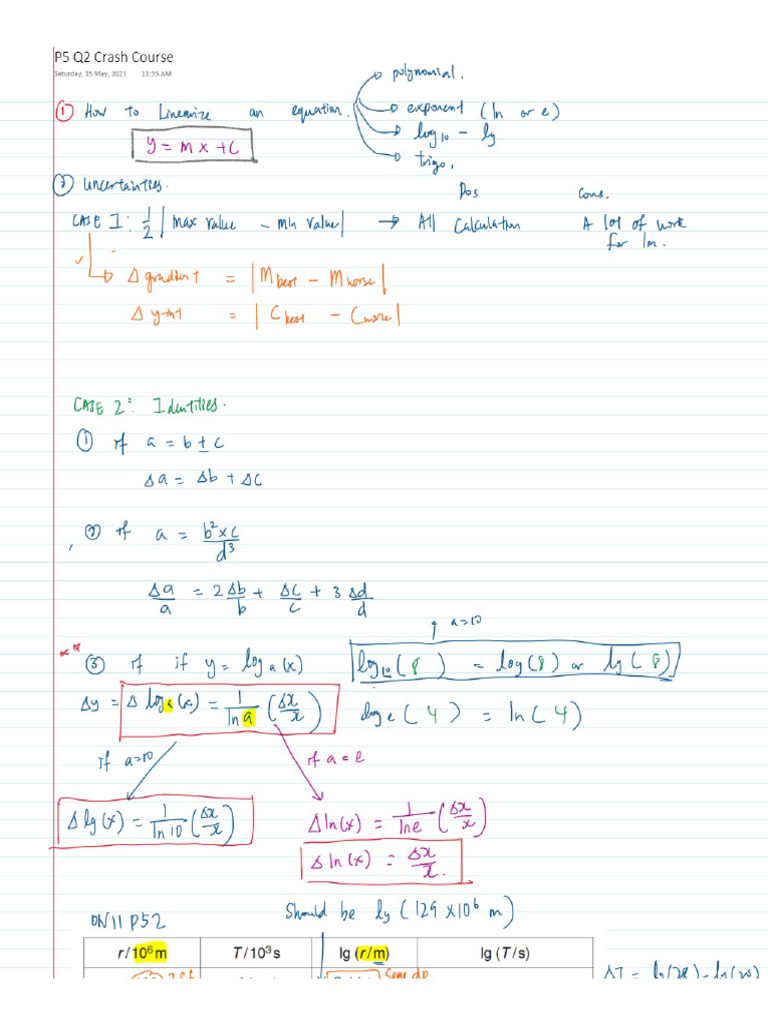 P5 Q2 Crash Course
Saturday, 15 May, 2021 11:35 AM
① How to Linearize an equation.
→ polynomial.
→ exponent (ln or e)
→ log10 - lg
→ trigo.
y = mx + c
② Uncertainties.
Pos Cons.
CASE 1: 1/2 | max value - min value | → All Calculation A lot of work for 1m.
✓ → Δ gradient = | Mbest - Mworse |
Δ y-int = | Cbest - Cworse |
CASE 2: Identities.
① if a = b ± c
Δa = Δb + Δc
② if a = b² x c / d³
Δa/a = 2 Δb/b + Δc/c + 3 Δd/d
↑ a=10
③ if if y = log a (x) log10 (8) = log(8) or lg(8)
Δy = Δ log a (x) = 1/ln a (Δx/x) log e (4) = ln(4)
if a=10 if a = e
Δ lg(x) = 1/ln 10 (Δx/x) Δ ln(x) = 1/ln e (Δx/x)
Δ ln(x) = Δx/x.
ON11 P52 Should be lg (129 x10⁶ m)
r / 10⁶ m T / 10³ s lg (r / m) lg (T / s)
same dp